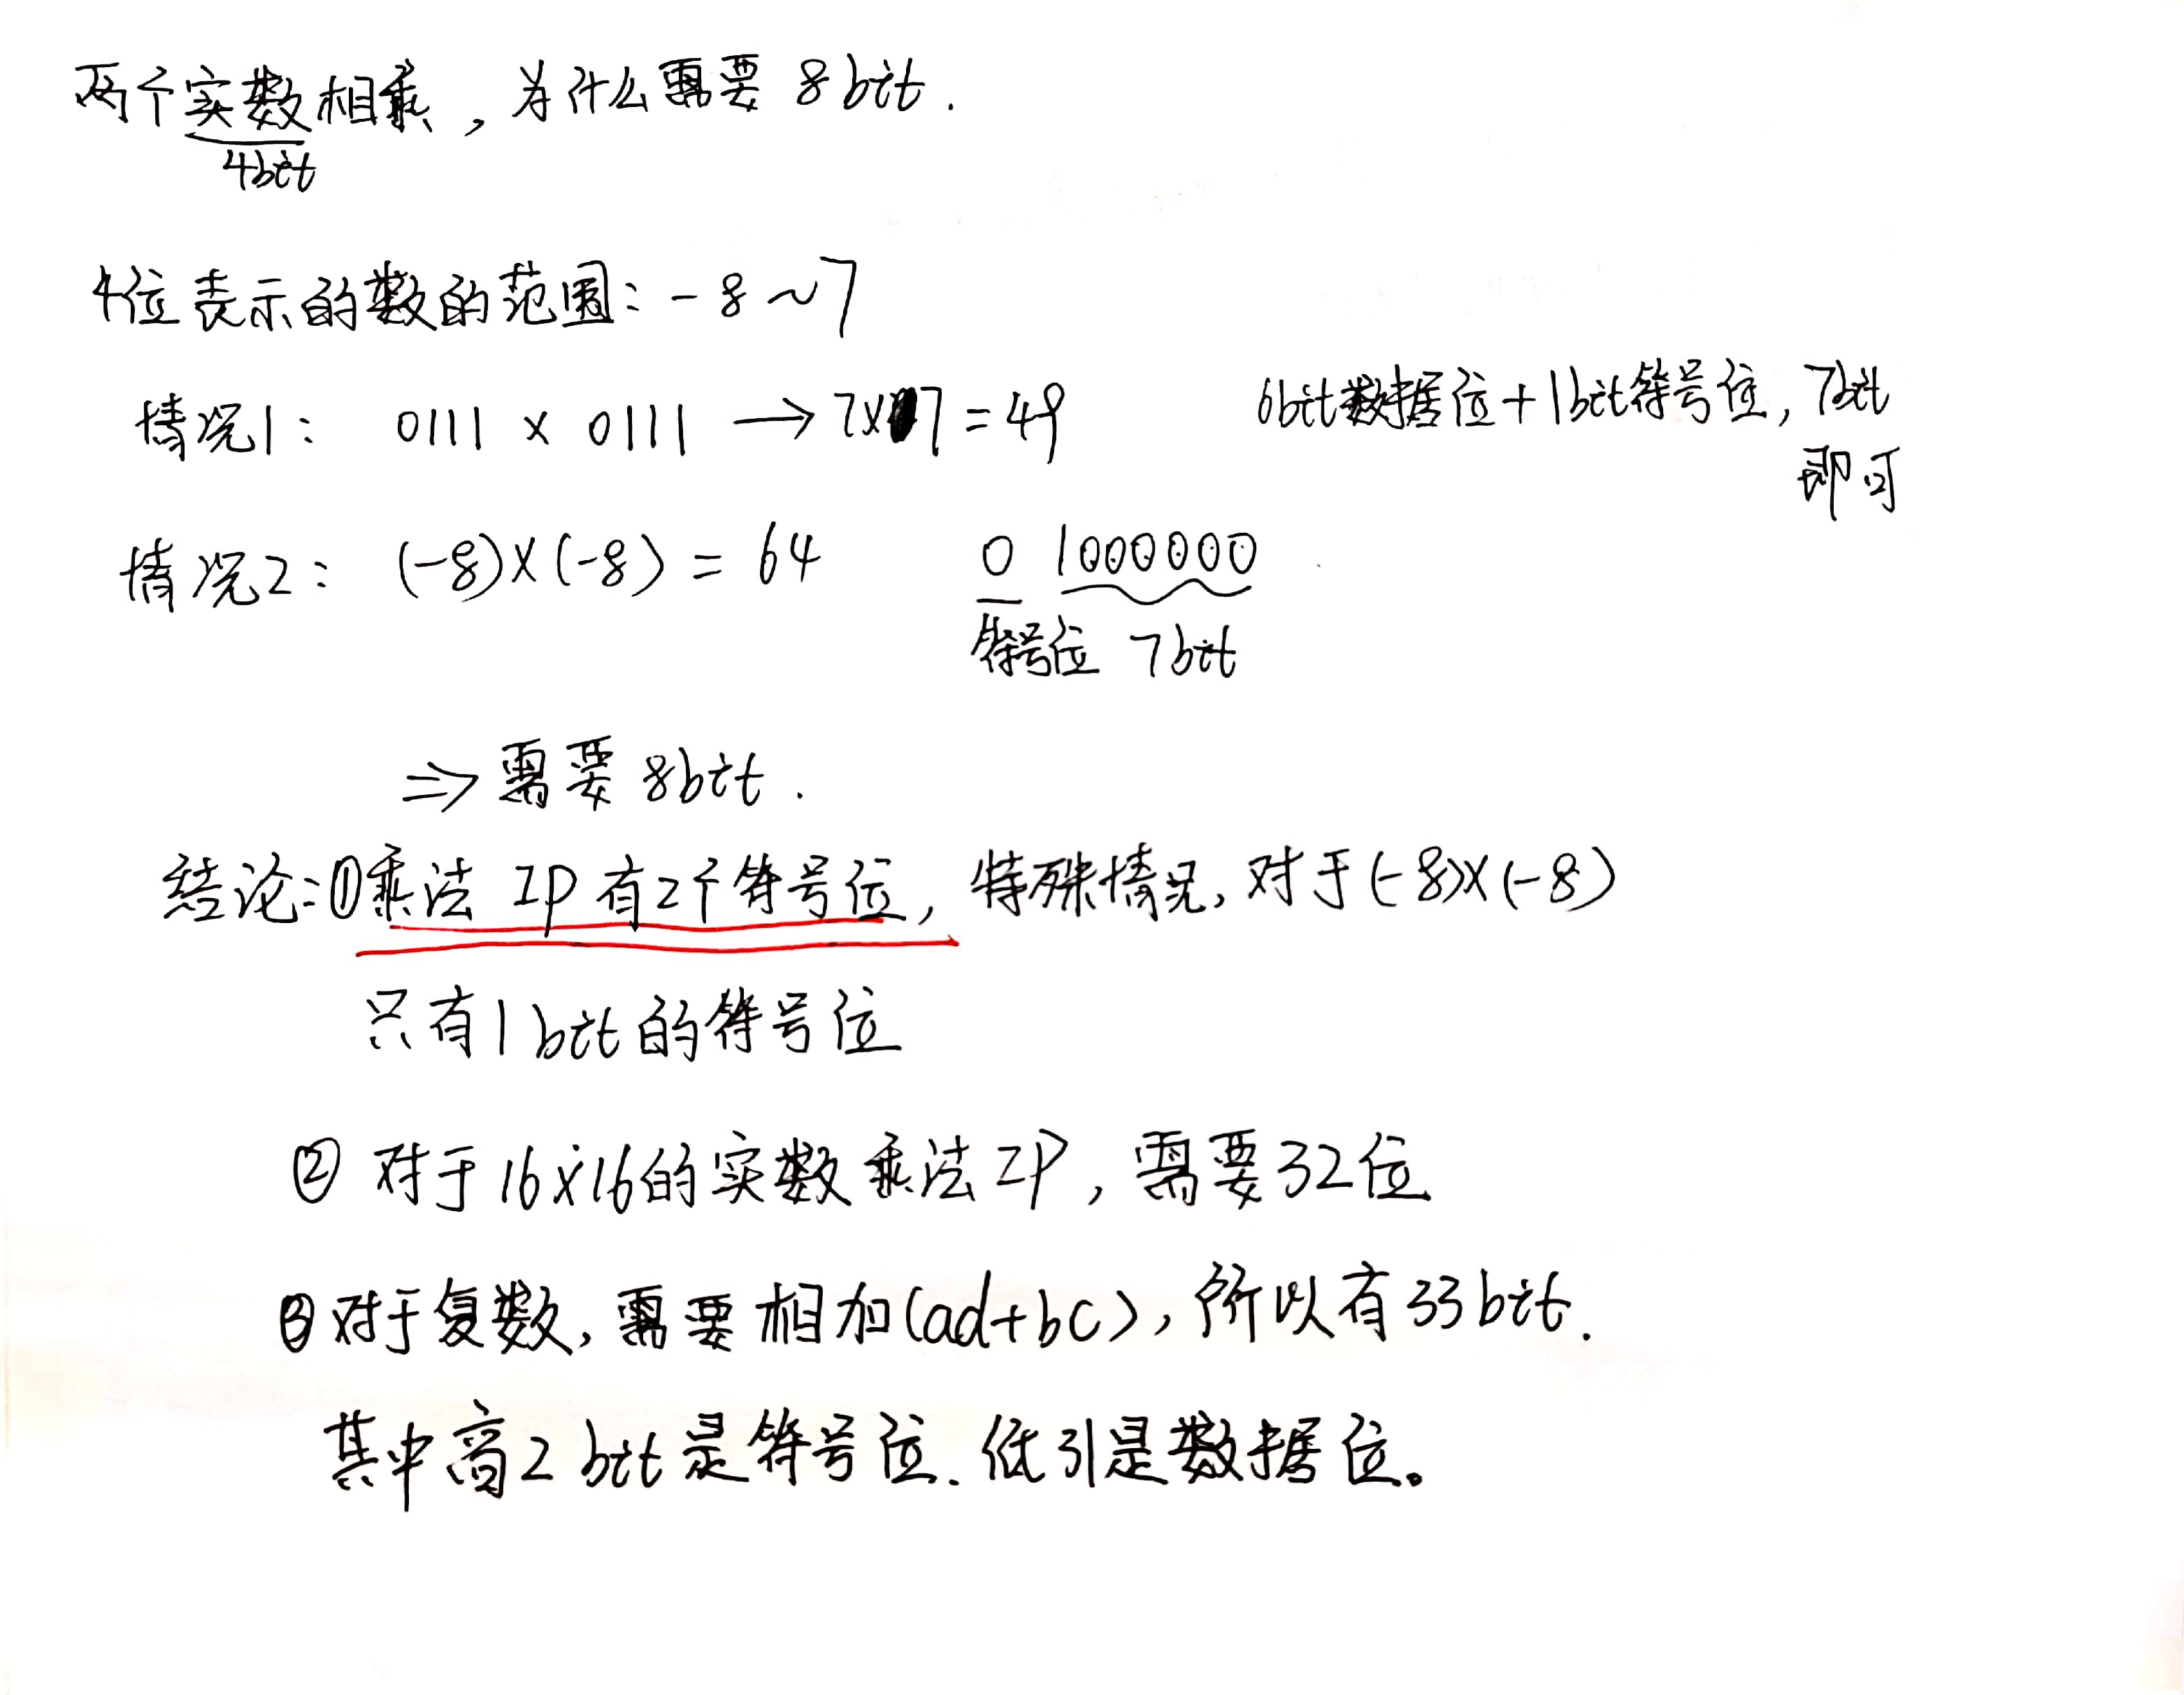 两个实数相乘，为什么需要 8bit.
4bit
4位表示的数的范围：-8～7
情况1： 0111 × 0111 → 7×7=49
6bit数据位+1bit符号位，7bit
即可
情况2： (-8)×(-8) = 64 0 1000000
符号位 7bit
⇒ 需要 8bit.
结论：①乘法 IP 有2个符号位，特殊情况，对于(-8)×(-8)
只有1bit的符号位
② 对于16×16的实数乘法IP，需要32位
③对于复数，需要相加(ad+bc)，所以有33bit.
其中高2bit是符号位.低31是数据位。